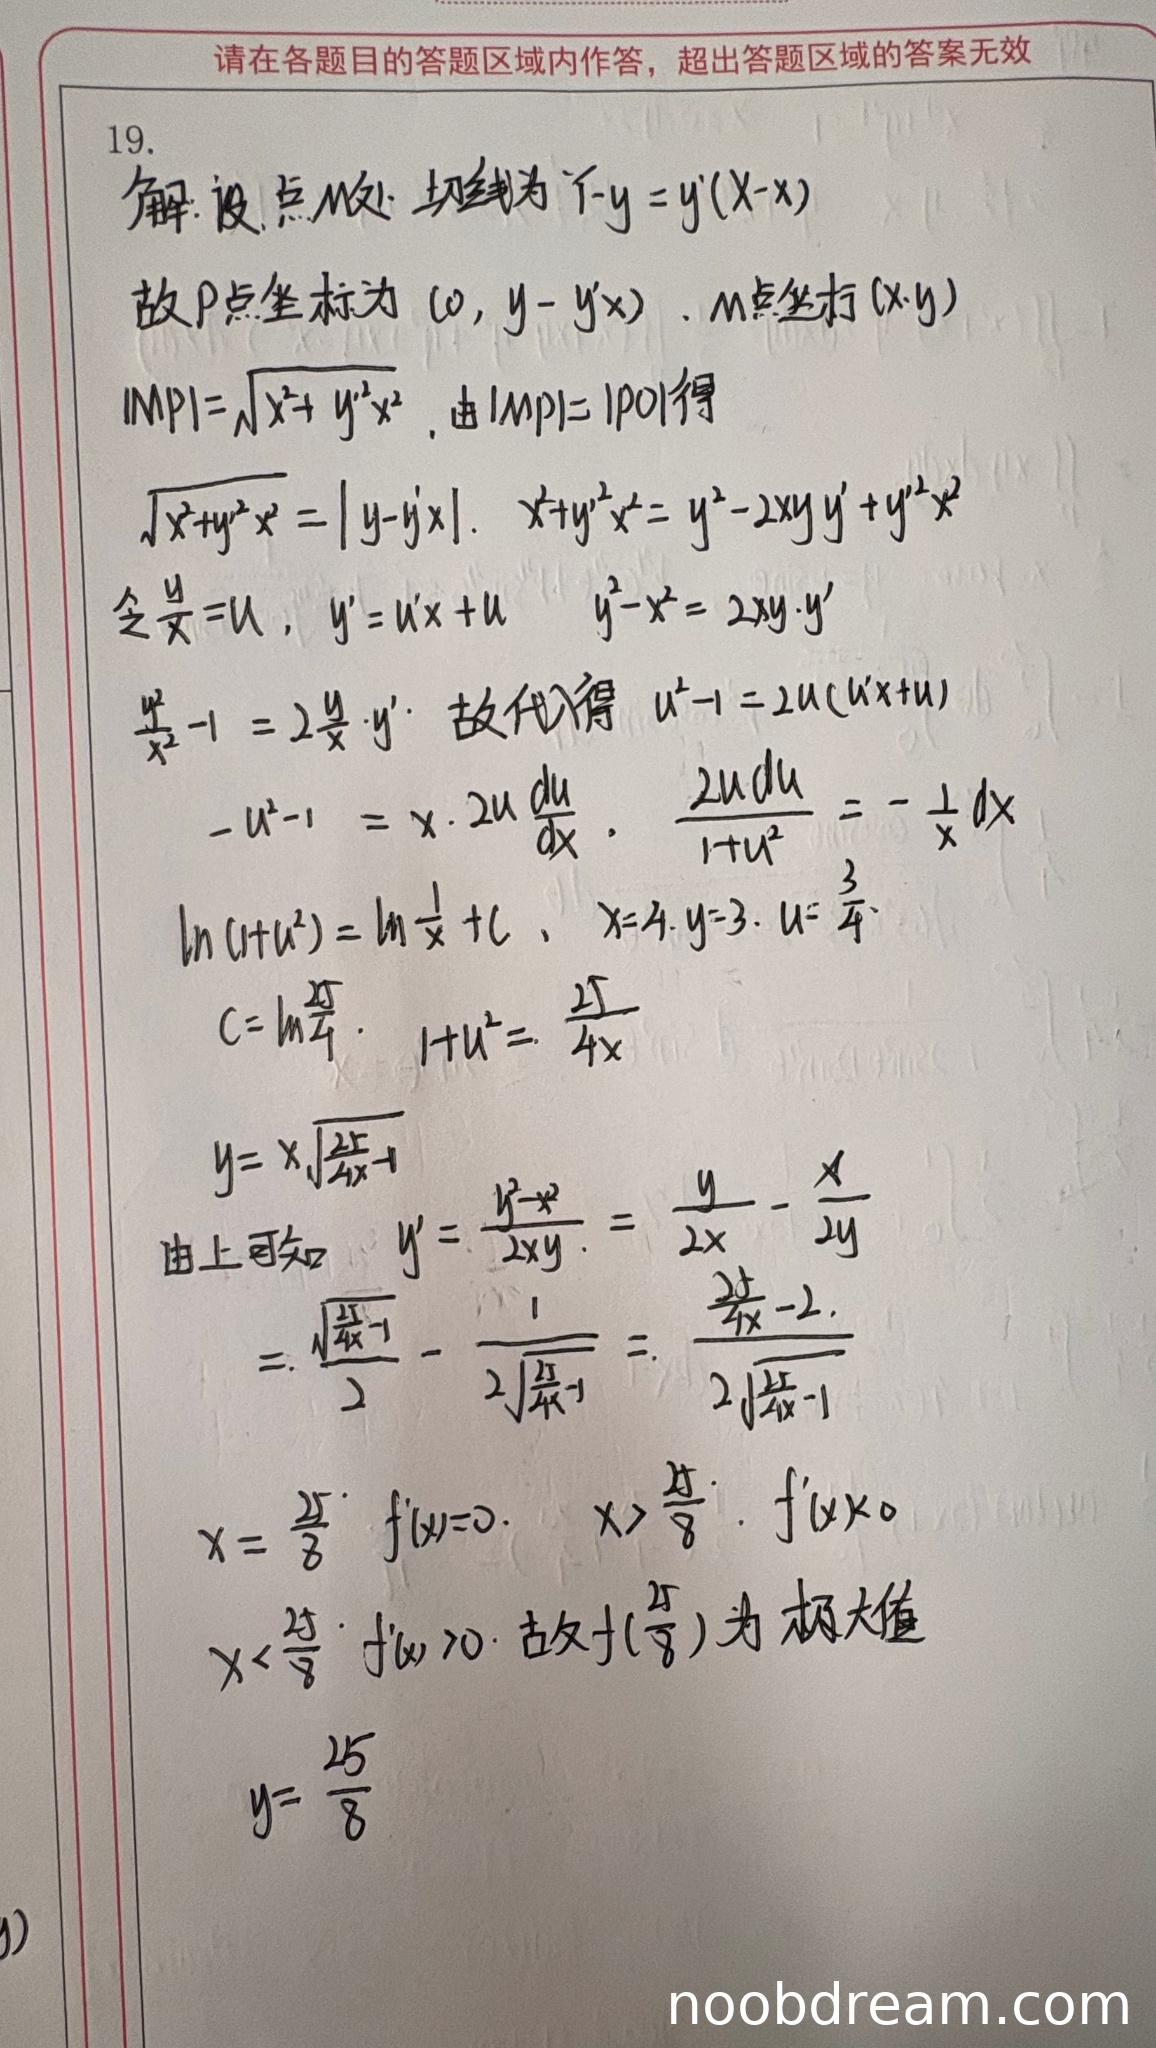 请在各题目的答题区域内作答，超出答题区域的答案无效
19.
解：设点M处切线为 Y-y=y'(X-x)
故P点坐标为 (0, y-y'x). M点坐标(x.y)
|MP|=√(x²+y'²x²), 由|MP|=|PO|得
√(x²+y'²x²)=|y-y'x|. x²+y'²x²=y²-2xyy'+y'²x²
令 y/x=u, y'=u'x+u y²-x²=2xy·y'
y²/x²-1=2y/x·y'. 故代入得 u²-1=2u(u'x+u)
-u²-1=x·2u du/dx. 2udu/(1+u²)=-1/x dx
ln(1+u²)=ln 1/x+C, x=4. y=3. u=3/4.
C=ln 25/4. 1+u²=25/4x
y=x√(25/4x-1)
由上可知 y'=(y²-x²)/2xy.=y/2x-x/2y
=√(25/4x-1)/2-1/(2√(25/4x-1))=(25/4x-2)/(2√(25/4x-1))
x=25/8. f'(x)=0. x>25/8. f'(x)<0
x<25/8. f'(x)>0. 故f(25/8)为极大值
y=25/8
y)
noobdream.com